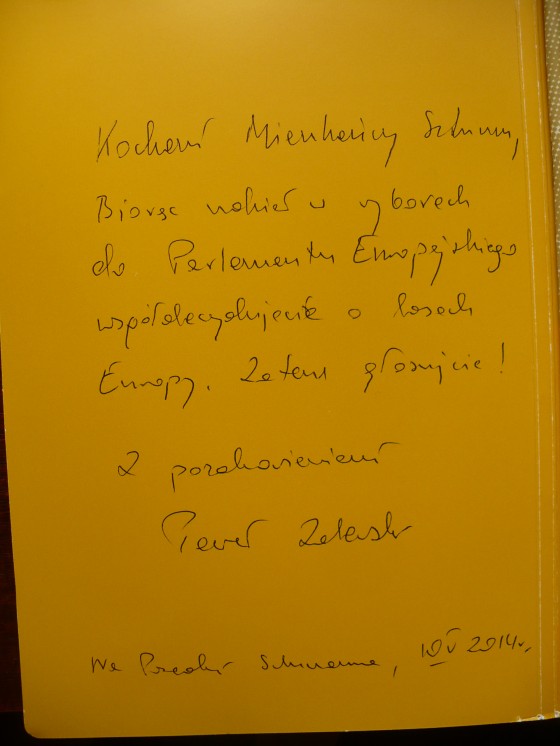 Kochani Mieszkańcy Sztumu,
Biorąc udział w wyborach
do Parlamentu Europejskiego
współdecydujecie o losach
Europy. Zatem głosujcie!
Z pozdrowieniami
Paweł Zalewski
Na Paradzie Schumana, 10 V 2014r.,